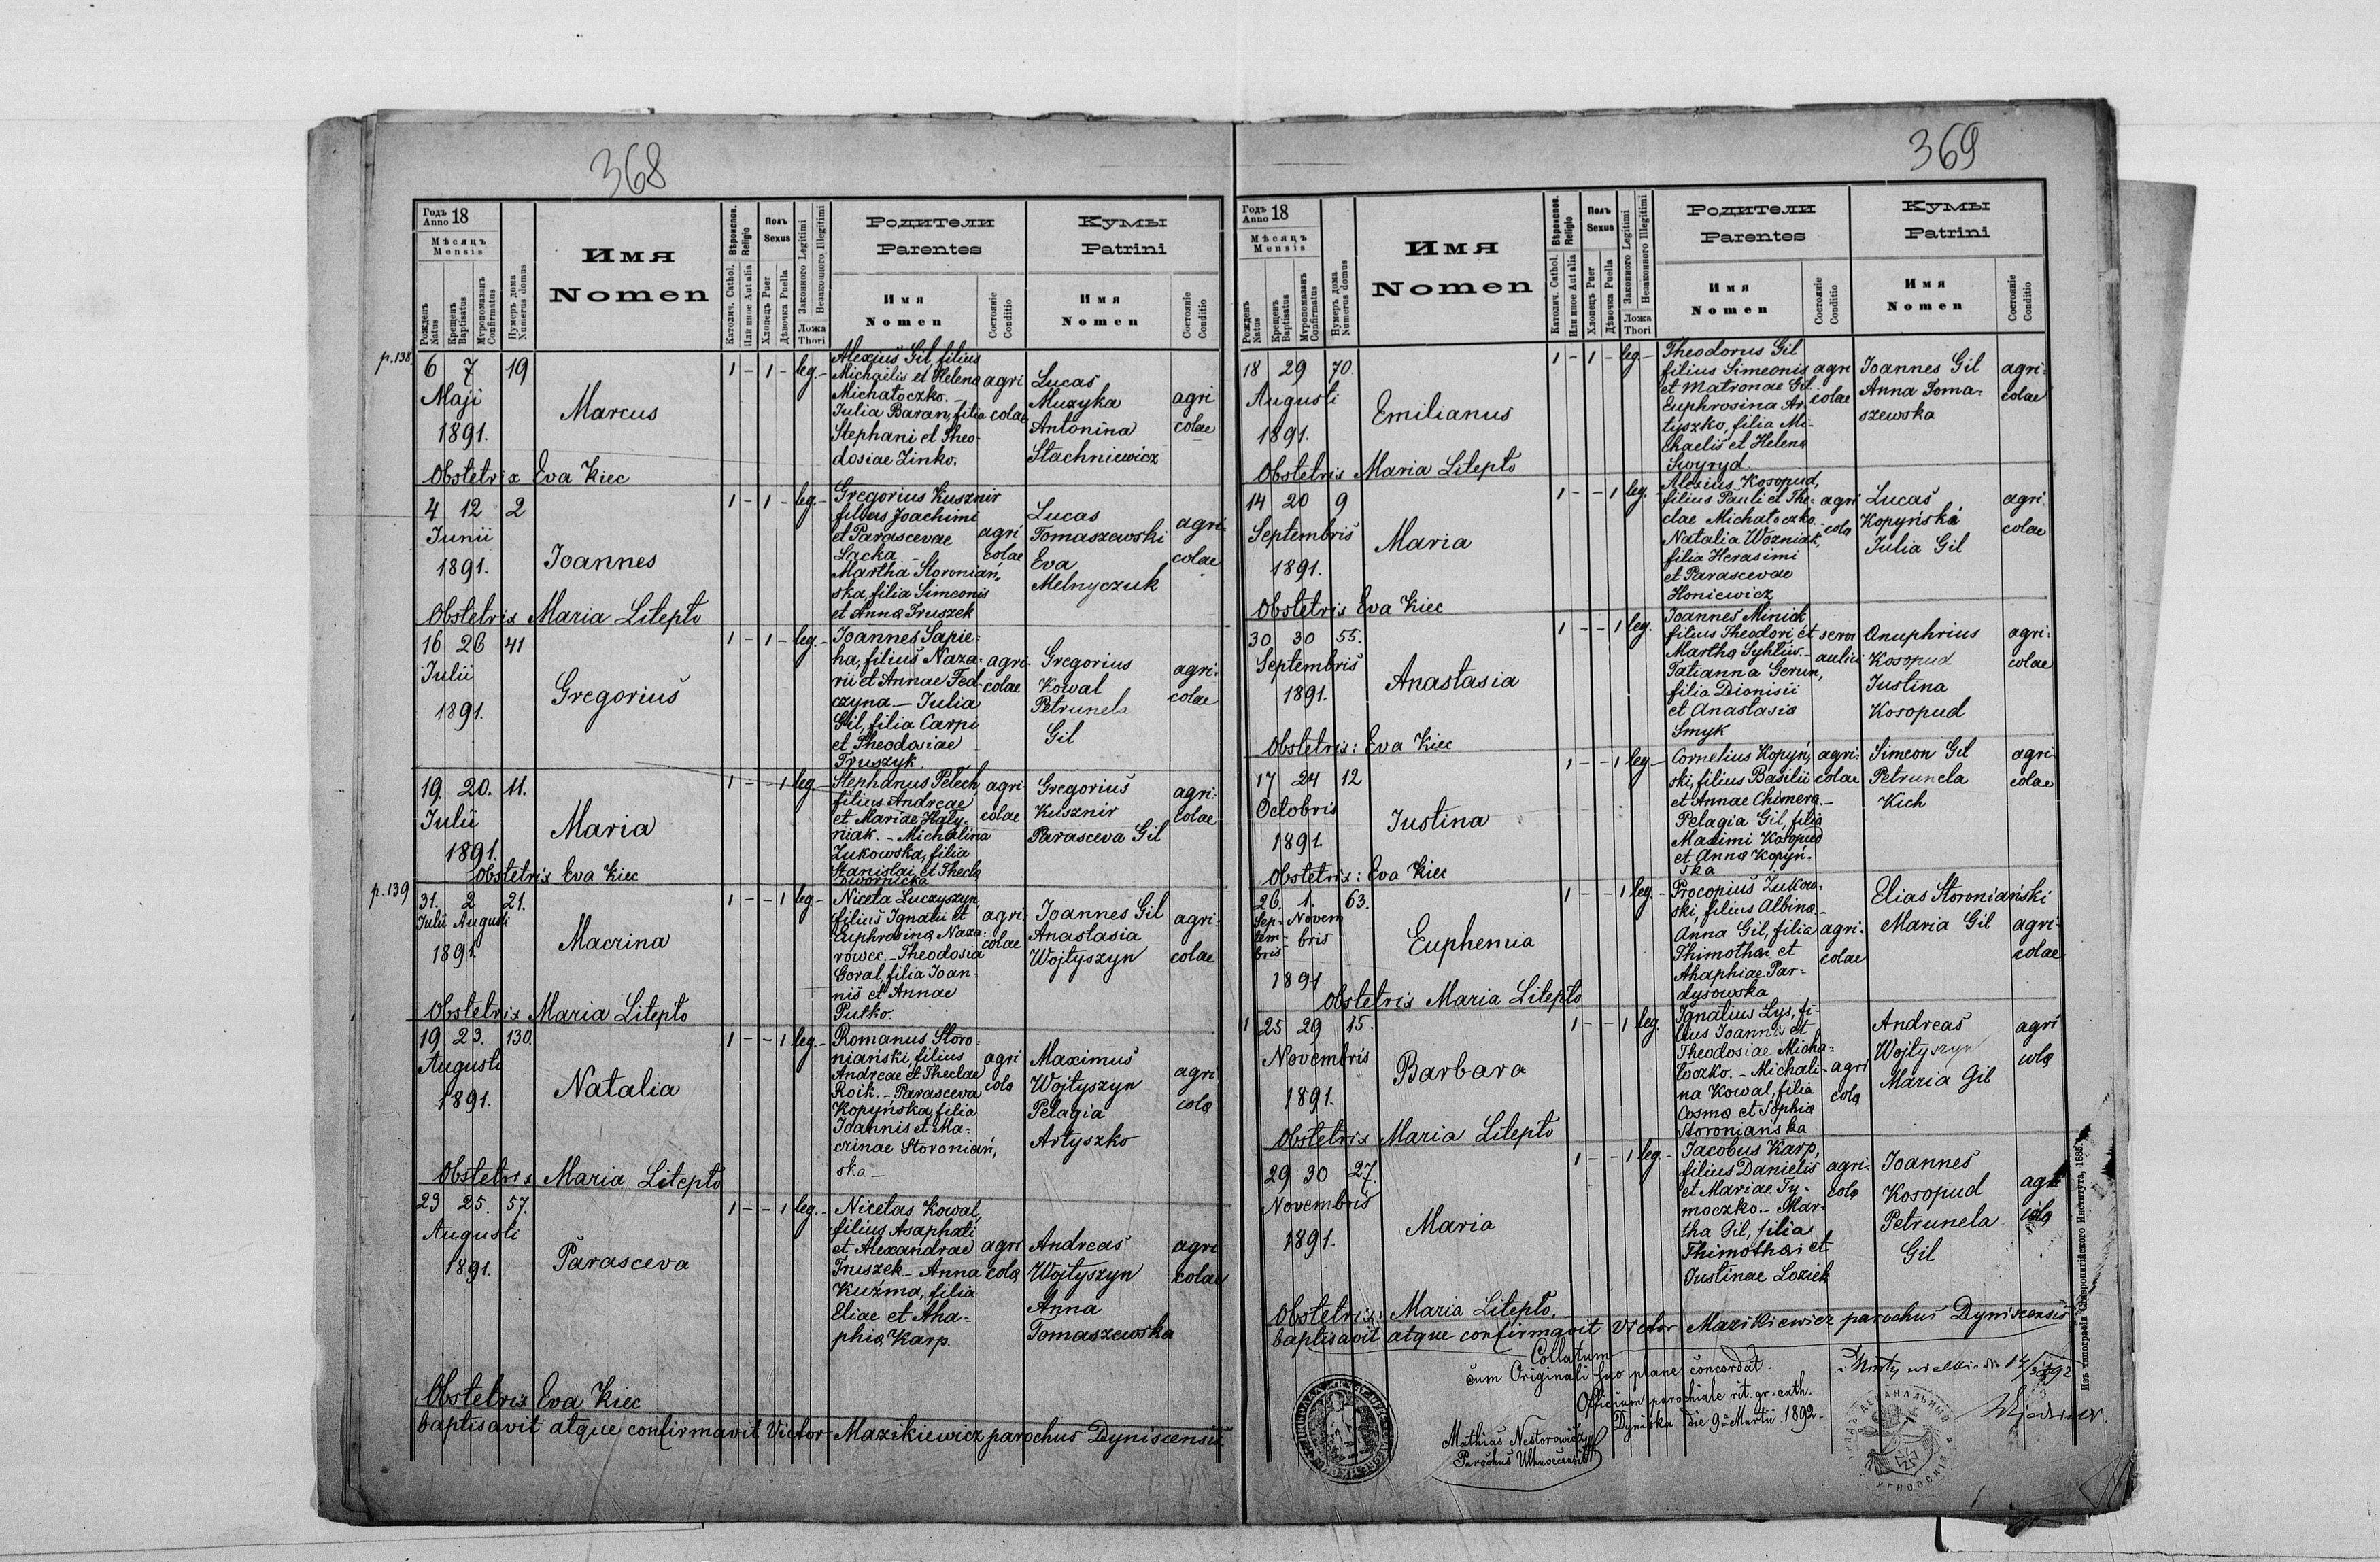 368
Годъ Anno 18
Мѣсяцъ
Mensis
Рожденъ Natus
Крещенъ Baptisatus
Муропомазанъ Confirmatus
Нумеръ дома Numerus domus
Имя
Nomen
Вѣроиспов. Religio
Католич. Cathol.
Или иное Aut alia
Полъ
Sexus
Хлопецъ Puer
Дѣвочка Puella
Законного Legitimi
Незаконного Illegitimi
Ложа
Thori
Родители
Parentes
Имя
Nomen
Состояніе
Conditio
Кумы
Patrini
Имя
Nomen
Состояніе
Conditio
p.138
6 7 19
Maji
1891.
Marcus
1 - 1 - leg.-
Alexius Gil, filius
Michaelis et Helena
Michałoczko. -
Julia Baran, filia
Stephani et Theo-
dosiae Zinko.
agri
colae
Lucas
Muzyka
Antonina
Stachniewicz
agri
colae
Obstetrix Eva Kiec
4 12 2
Junii
1891.
Joannes
1 - 1 - leg.-
Gregorius Kusznir
filius Joachimi
et Parascevae
Lacka -
Martha Storoniań-
ska, filia Simeonis
et Anna Truszek
agri
colae
Lucas
Tomaszewski
Eva
Melnyczuk
agri
colae
Obstetrix Maria Litepło
16 26 41
Julii
1891.
Gregorius
1 - 1 - leg.-
Joannes Sapie-
ha, filius Naza-
rii et Annae Fed-
czyna - Julia
Gil, filia Carpi
et Theodosiae
Truszyk.
agri-
colae
Gregorius
Kowal
Petrunela
Gil
agri-
colae
19 20. 11.
Julii
1891.
Maria
1 - - 1 leg.-
Stephanus Pelech,
filius Andreae
et Mariae Hały-
niak. - Michalina
Żukowska, filia
Stanislai et Thecla
Dwornicka
agri
colae
Gregorius
Kusznir
Parasceva Gil
agri-
colae
Obstetrix Eva Kiec
p.139
31. 2 21.
Julii Augusti
1891.
Macrina
1 - - 1 leg-
Niceta Luczyszyn,
filius Ignatii et
Euphrosina Naza-
rowec. - Theodosia
Goral, filia Joan-
nis et Annae
Putko.
agri-
colae
Joannes Gil
Anastasia
Wojtyszyn
agri-
colae
Obstetrix Maria Litepło
19. 23. 130.
Augusti
1891.
Natalia
1 - - 1 leg.-
Romanus Storo-
niański, filius
Andreae et Theclae
Roik. - Parasceva
Kopyńska, filia
Joannis et Ma-
crinae Storoniań,
ska -
agri
cola
Maximus
Wojtyszyn
Pelagia
Artyszko
agri
cola
Obstetrix Maria Litepło
23 25. 57.
Augusti
1891.
Parasceva
1 - - 1 leg.-
Nicetas Kowal,
filius Asaphati
et Alexandrae
Truszek - Anna
Kuźma, filia
Eliae et Aha-
phia Karp.
agri
cola
Andreas
Wojtyszyn
Anna
Tomaszewska
agri
colae
Obstetrix Eva Kiec
baptisavit atque confirmavit Victor Mazikiewicz parochus Dyniscensis
369
Годъ Anno 18
Мѣсяцъ
Mensis
Рожденъ Natus
Крещенъ Baptisatus
Муропомазанъ Confirmatus
Нумеръ дома Numerus domus
Имя
Nomen
Вѣроиспов. Religio
Католич. Cathol.
Или иное Aut alia
Полъ
Sexus
Хлопецъ Puer
Дѣвочка Puella
Законного Legitimi
Незаконного Illegitimi
Ложа
Thori
Родители
Parentes
Имя
Nomen
Состояніе
Conditio
Кумы
Patrini
Имя
Nomen
Состояніе
Conditio
18 29 70
Augusti
1891.
Emilianus
1 - 1 - leg-
Theodorus Gil
filius Simeonis
et Matronae Gil
Euphrosina Ar-
tyszko, filia Mi-
chaelis et Helena
Swyryd.
agri
colae
Joannes Gil
Anna Toma-
szewska
agri-
colae
Obstetrix Maria Litepło
14 20 9
Septembris
1891.
Maria
1 - - 1 leg.-
Alexius Kosopud,
filius Pauli et The-
clae Michałoczko.
Natalia Woźniak,
filia Herasimi
et Parascevae
Honiewicz
agri
cola
Lucas
Kopyński
Julia Gil
agri
colae
Obstetrix Eva Kiec
30 30 55.
Septembris
1891.
Anastasia
1 - - 1 leg.
Joannes Miniak
filius Theodori et
Martha Syhłiw.-
Tatianna Gerun,
filia Dionisii
et Anastasia
Smyk
servi
aulici
Onuphrius
Kosopud
Justina
Kosopud
agri-
colae
Obstetrix: Eva Kiec
17 24 12
Octobris
1891
Justina
1 - - 1 leg-
Cornelius Kopyń,
ski, filius Basilii
et Annae Chimera.-
Pelagia Gil, filia
Maximi Kosopud
et Anna Kopyń-
ska
agri-
colae
Simeon Gil
Petrunela
Kich
agri
colae
Obstetrix: Eva Kiec
26. 1. 63.
Sep- Novem
tem- bris
bris
1891
Euphemia
1 - - 1 leg-
Procopius Żukow-
ski, filius Albina.-
Anna Gil, filia
Thimothai et
Ahaphiae Par-
dysowska
agri-
colae
Elias Storoniański
Maria Gil
agri-
colae
Obstetrix Maria Litepło
1 25 29 15.
Novembris
1891.
Barbara
1 - - 1 leg.
Ignatius Lys, fi-
lius Joannis et
Theodosiae Micha-
łoczko. - Michali-
na Kowal, filia
Cosma et Sophia
Storoniańska
agri
cola
Andreas
Wojtyszyn
Maria Gil
agri
cola
Obstetrix Maria Litepło
29 30 27.
Novembris
1891.
Maria
1 - - 1 leg-
Jacobus Karp,
filius Danielis
et Mariae Ty-
moczko. - Mar-
tha Gil, filia
Thimothai et
Justinae Loziek
agri-
cola
Joannes
Kosopud
Petrunela
Gil
agri
cola
Obstetrix: Maria Litepło.
baptisavit atque confirmavit Victor Mazikiewicz parochus Dyniscensis
Collatum
cum Originali suo plane concordat.
Officium parochiale rit. gr. cath.
Dyniska die 9 Martii 1892.
Mathias Nestorowicz
Parochus
Изъ типографіи Ставропигійского Института, 1885.